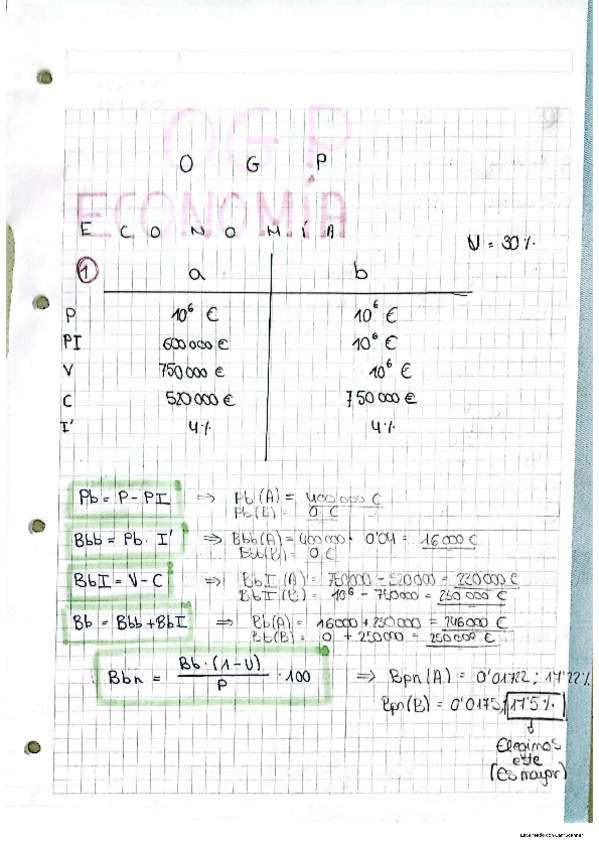 OGP
O G P
ECONOMÍA
E C O N O M Í A
U = 30%
1 a b
P 10⁶ € 10⁶ €
PI 600000 € 10⁶ €
V 750000 € 10⁶ €
C 520000 € 750000 €
I' 4% 4%
Pb = P - PI ⇒ Pb(A) = 400000 €
Pb(B) = 0 €
Bbb = Pb · I' ⇒ Bbb(A) = 400000 · 0'04 = 16000 €
Bbb(B) = 0 €
BbI = V - C ⇒ BbI(A) = 750000 - 520000 = 230000 €
BbI(B) = 10⁶ - 750000 = 250000 €
Bb = Bbb + BbI ⇒ Bb(A) = 16000 + 230000 = 246000 €
Bb(B) = 0 + 250000 = 250000 €
Bbn = Bb · (1-U) / P · 100 ⇒ Bpn(A) = 0'01722; 17'22%
Bpn(B) = 0'0175; 17'5%
Elegimos
este
(Es mayor)